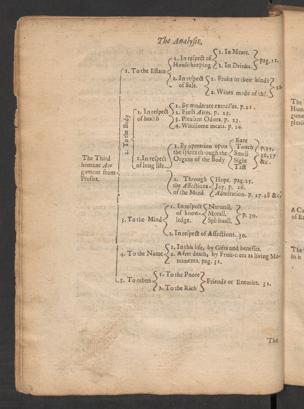 The Analysis.
1. In respect of Housekeeping
1. In Meate.
2. In Drinke.
pag. 11.
1. To the Estate
2. In respect of Sale.
1. Fruits in their kinds
2. Wines made of thē.
2. To the Body
1. In respect of health
1. By moderate exercises. p. 21.
2. Fresh Aires. p. 23.
3. Pleasant Odors. p. 23.
4. Wholsome meats. p. 24
2. In respect of long life.
1. By operation upon the spirits through the Organs of the Body
Eare
Touch
Smell
Sight
Tast
&c.
2. Through the Affections of the Mind
Hope. pag. 25.
Joy. p. 26.
Admiration. p. 27. 28 &c.
The Third humane Argument from Profits.
3. To the Mind
1. In respect of knowledge.
Naturall.
Morall.
Spirituall.
p. 30.
2. In respect of Affections. 30.
4. To the Name
1. In this life, by Gifts and benefits.
2. After death, by Fruit-trees as living Monuments. pag. 31.
5. To others
1. To the Poore
2. To the Rich
Friends or Enemies. 32.
The